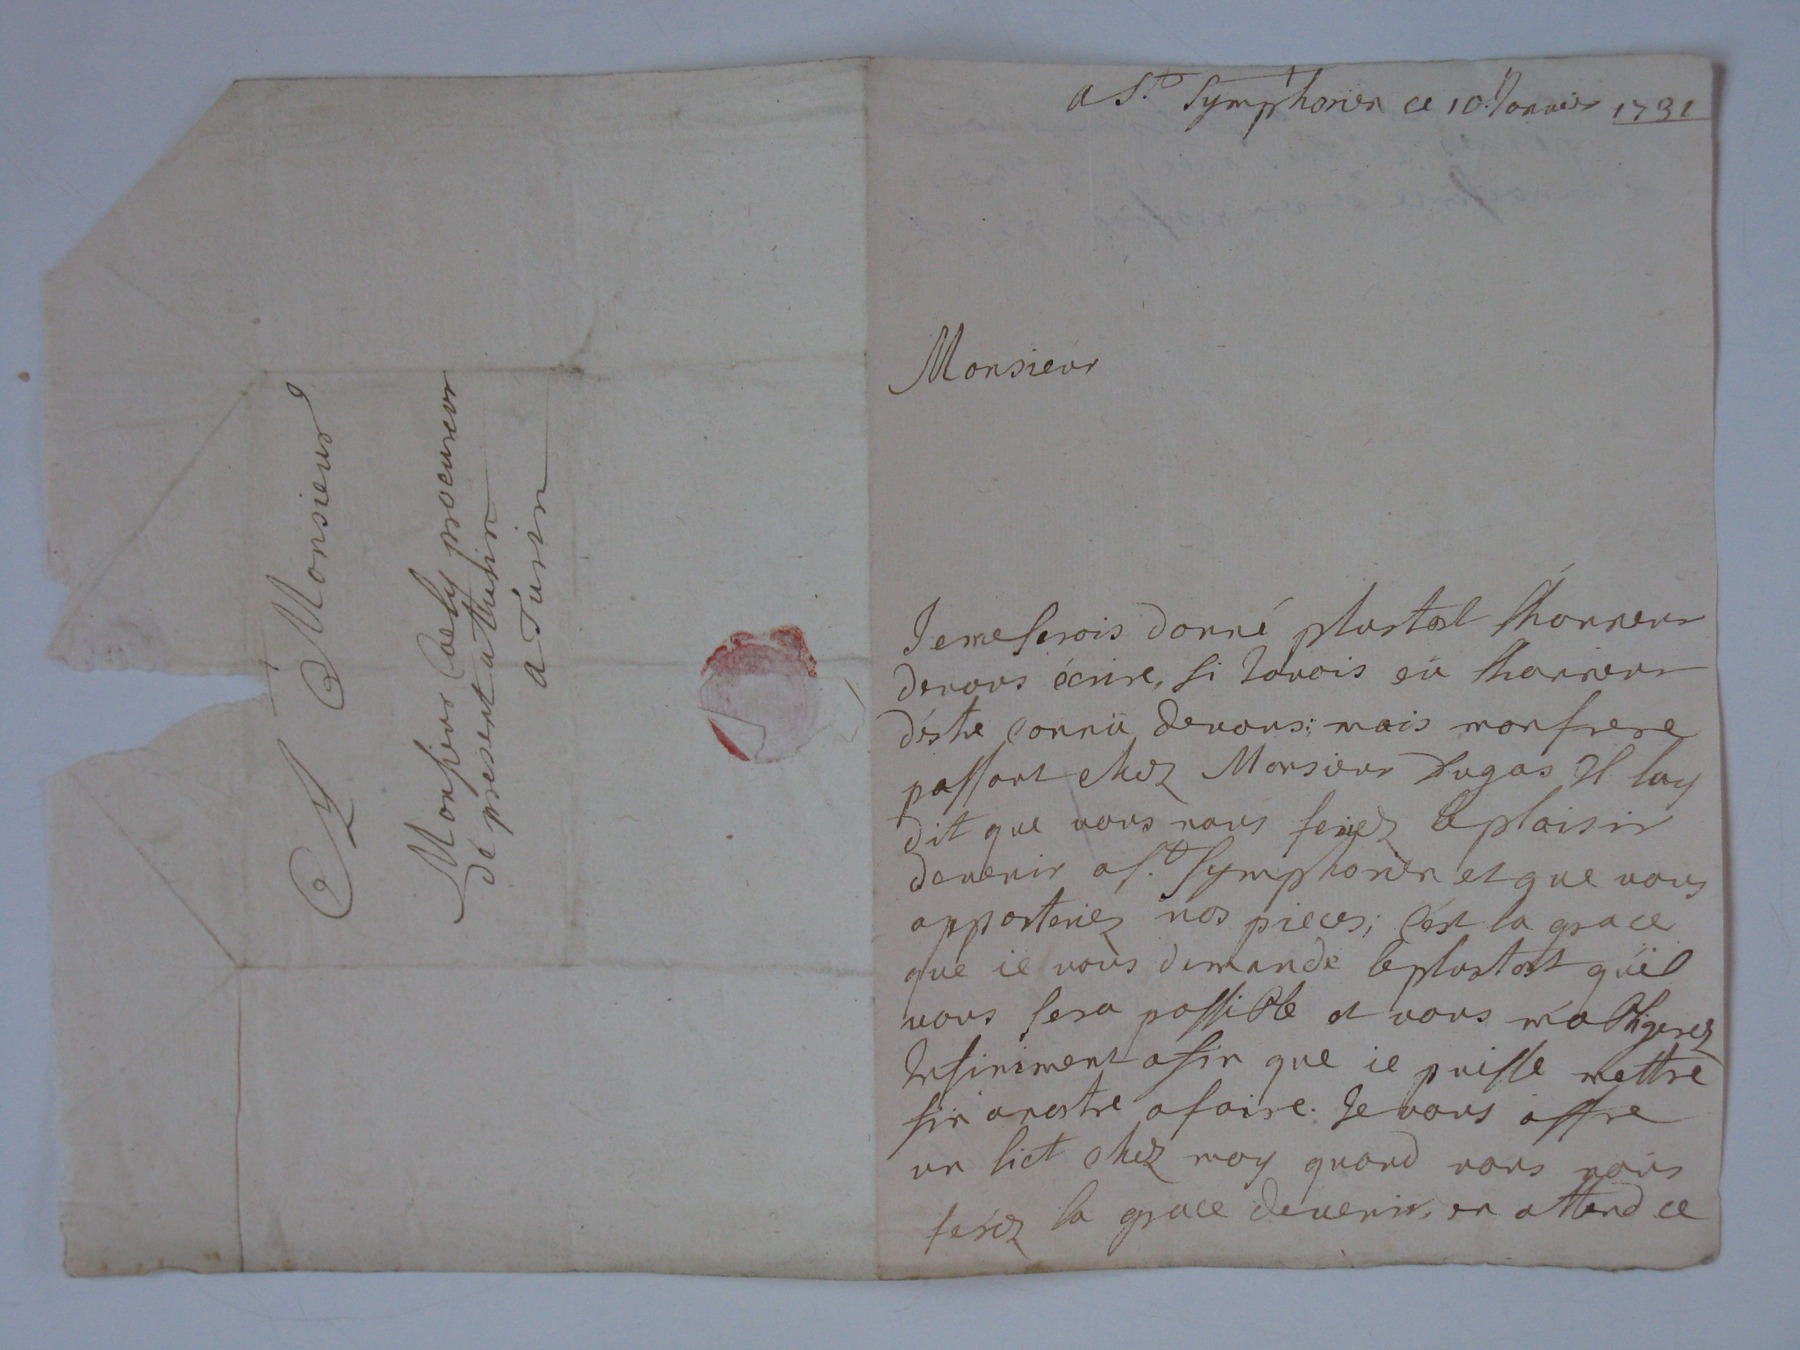 A Monsieur
Monsieur Coely procureur
de present a thurin
a Turin
a St. Symphorien ce 10. Janvier 1731
Monsieur
Je me serois donné plustost lhonneur
de vous écrire, si Javois eü lhonneur
déstre connü de vous; mais mon frere
passant chez Monsieur Dugas Il luy
dit que vous nous feriez le plaisir
de venir a St. Symphorien et que vous
apporteriez nos pieces; c'est la grace
que ie vous demande le plustost qu'il
vous sera possible et vous m'obligerez
Infiniment afin que ie puisse mettre
fin a nostre afaire. Je vous offre
un lict chez moy quand vous nous
ferez la grace de venir, en attend ce